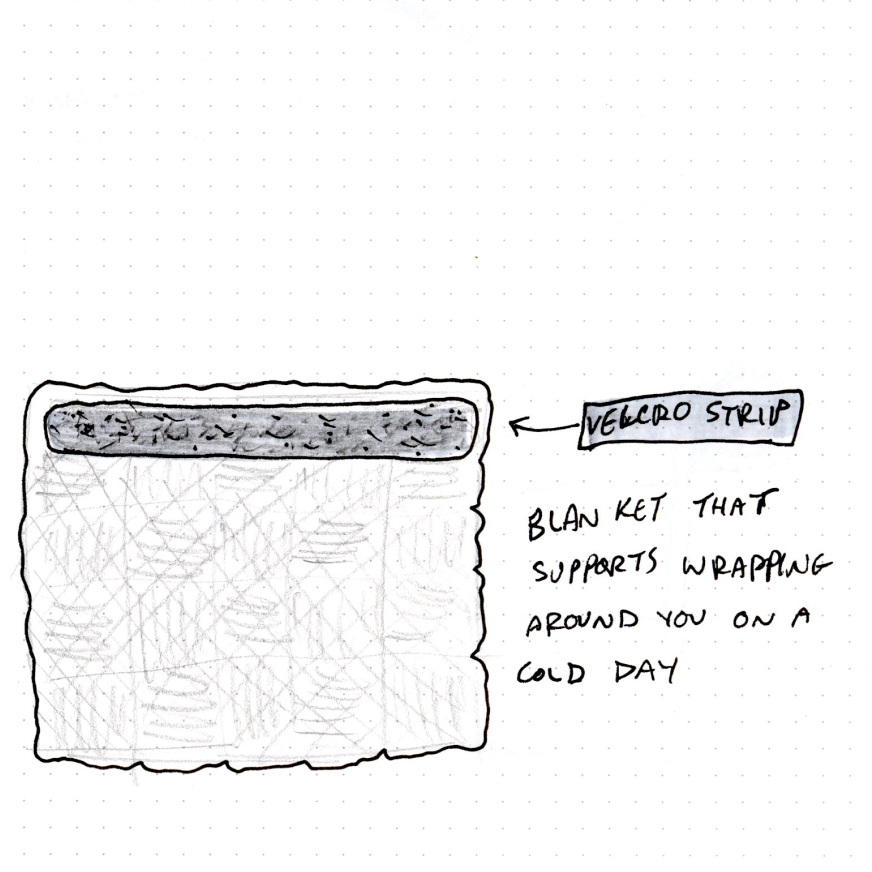 VELCRO STRIP
BLANKET THAT
SUPPORTS WRAPPING
AROUND YOU ON A
COLD DAY